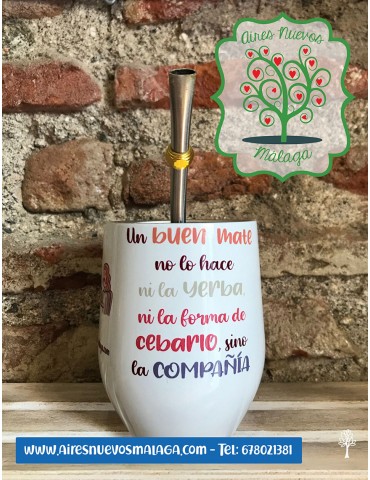 Aires Nuevos
Málaga
Un buen mate
no lo hace
ni la yerba,
ni la forma de
cebarlo, sino
la compañía
www.airesnuevosmalaga.com - Tel: 678021381